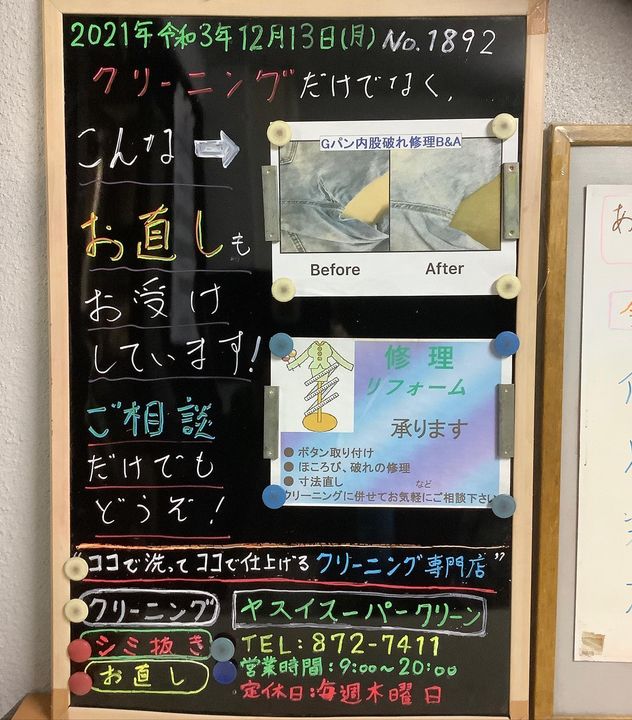 2021年令和3年12月13日(月) No.1892
クリーニングだけでなく、
こんな
お直しも
お受け
しています!
ご相談
だけでも
どうぞ!
Gパン内股破れ修理B&A
Before After
修理
リフォーム
承ります
● ボタン取り付け
● ほころび、破れの修理
● 寸法直し など
クリーニングに併せてお気軽にご相談下さい
"ココで洗ってココで仕上げるクリーニング専門店"
クリーニング ヤスイスーパークリーン
シミ抜き TEL:872-7411
お直し 営業時間:9:00~20:00
定休日:毎週木曜日